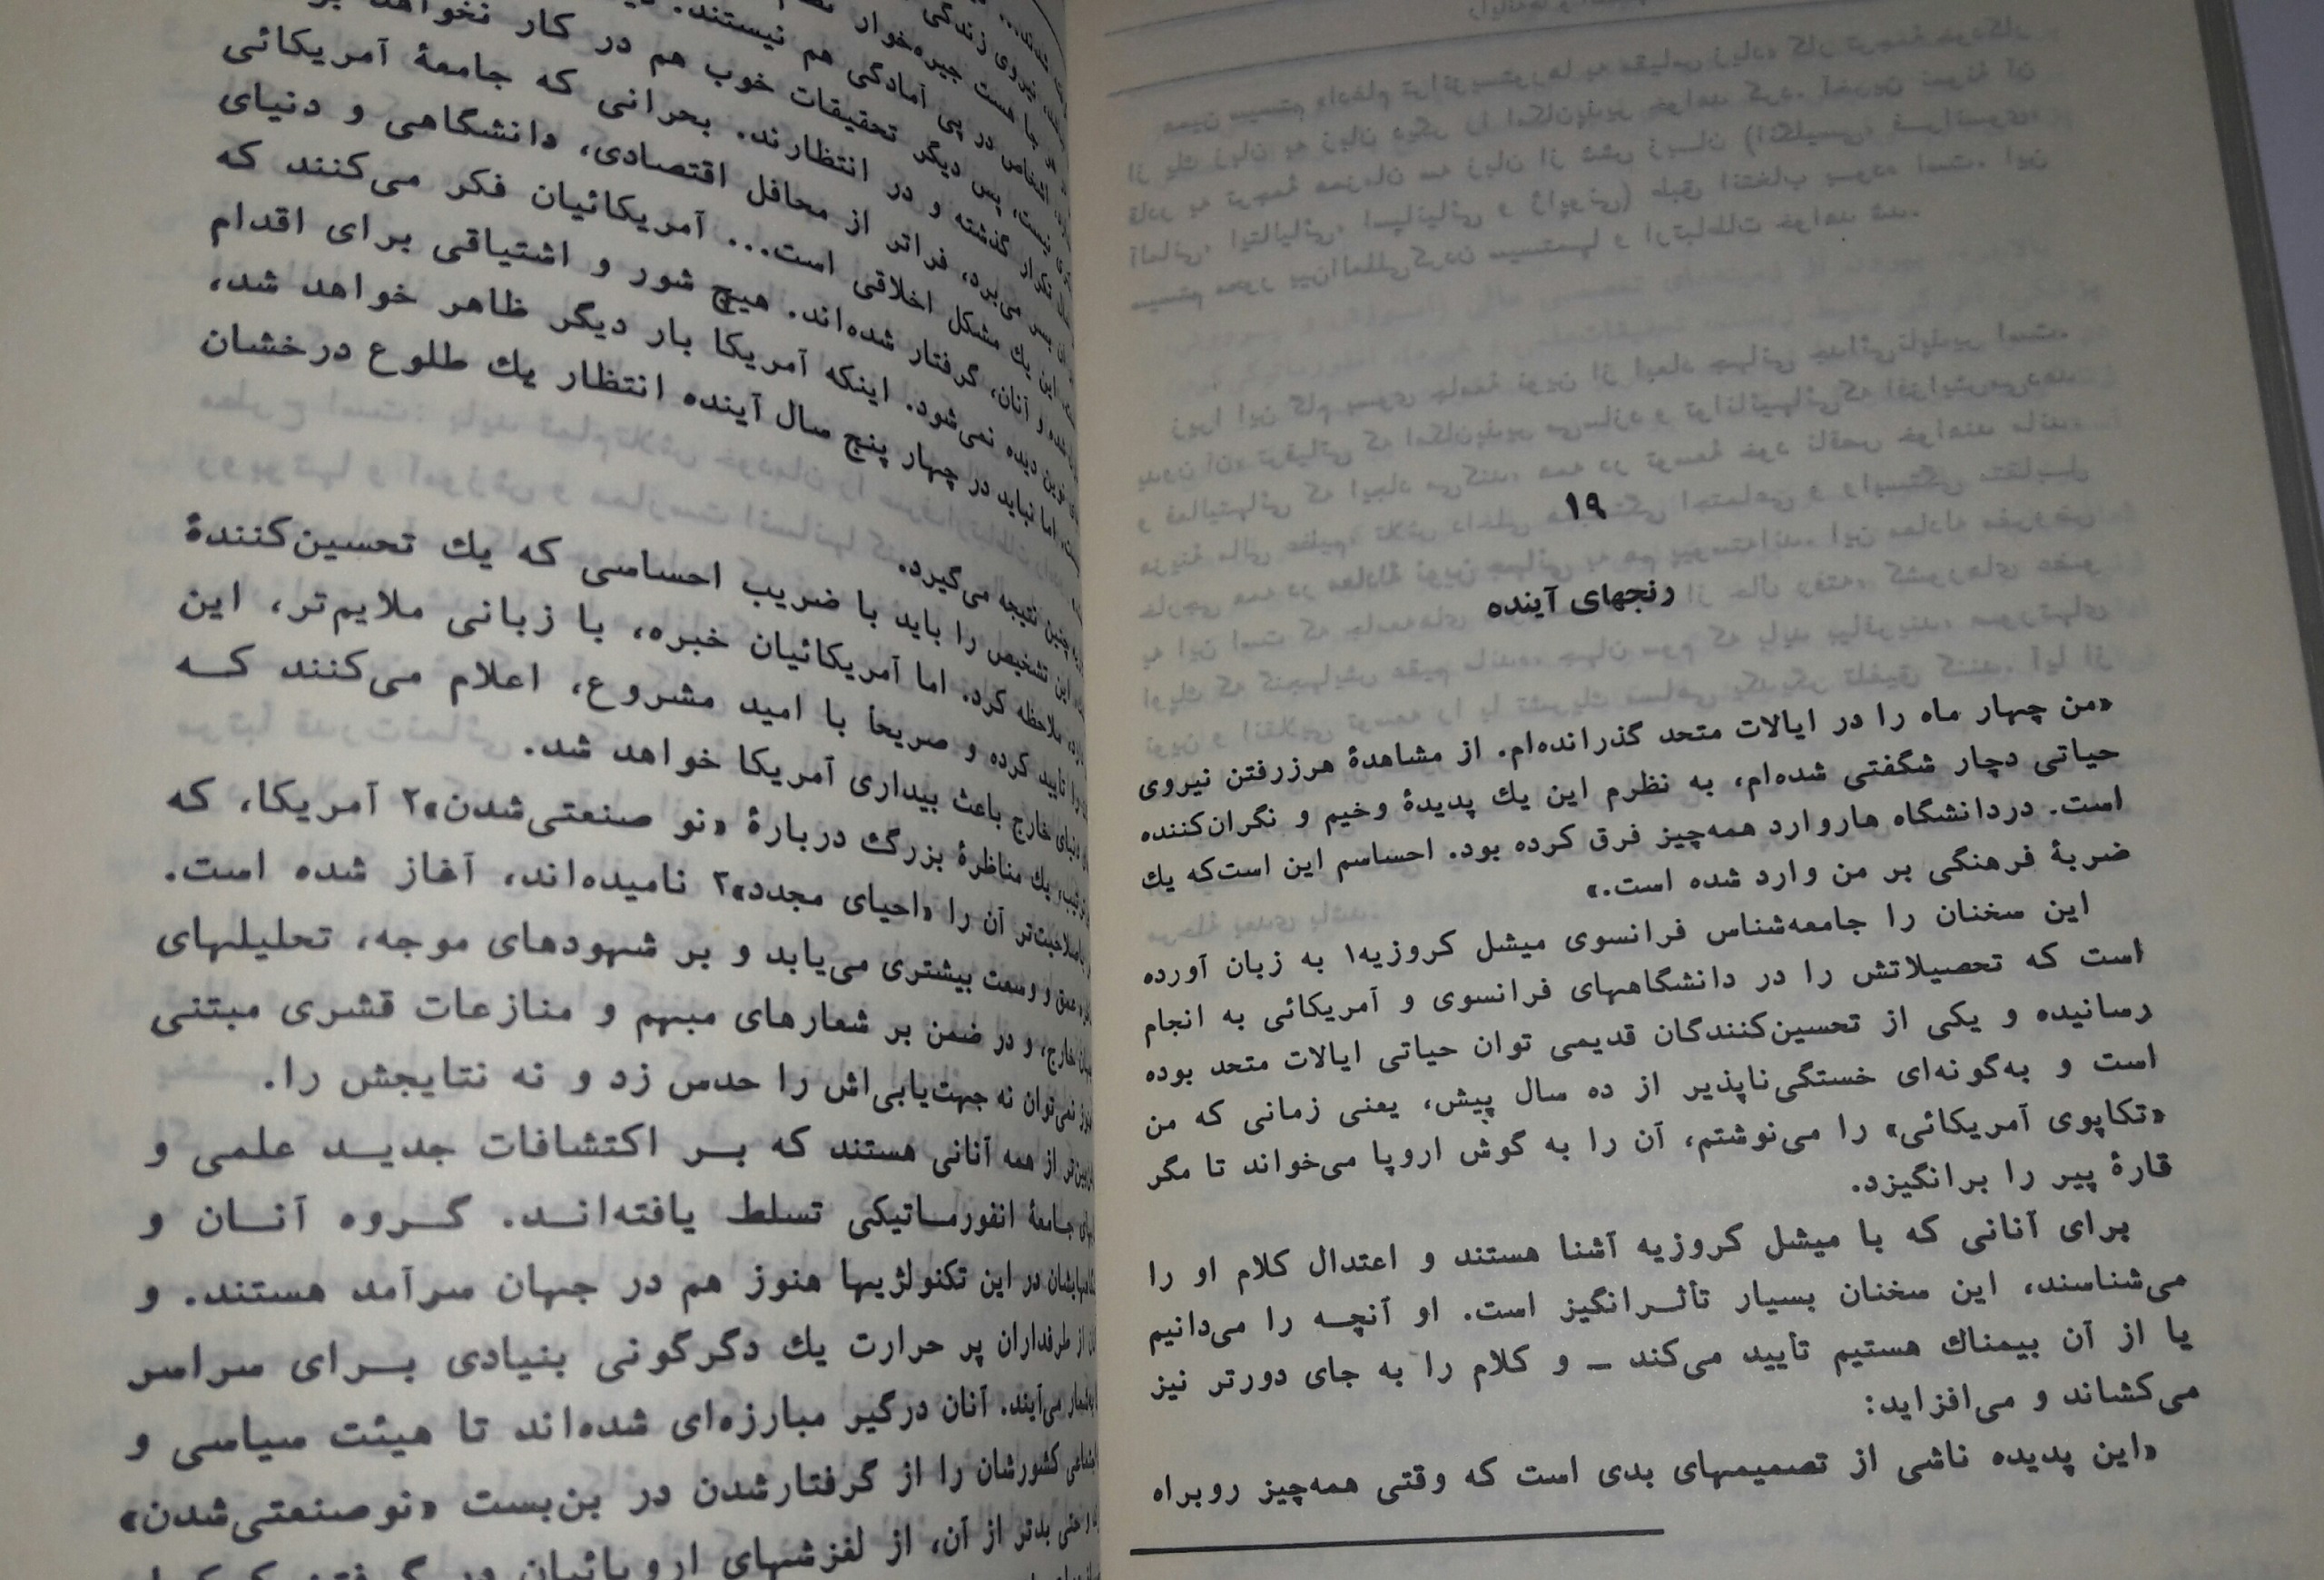 ۱۹
رنجهای آینده
«من چهار ماه را در ایالات متحد گذرانده‌ام. از مشاهدهٔ هرزرفتن نیروی
حیاتی دچار شگفتی شده‌ام، به نظرم این یك پدیدهٔ وخیم و نگران‌کننده
است. دردانشگاه هاروارد همه‌چیز فرق کرده بود. احساسم این است‌که یك
ضربهٔ فرهنگی بر من وارد شده است.»
این سخنان را جامعه‌شناس فرانسوی میشل کروزیه۱ به زبان آورده
است که تحصیلاتش را در دانشگاههای فرانسوی و آمریکائی به انجام
رسانیده و یکی از تحسین‌کنندگان قدیمی توان حیاتی ایالات متحد بوده
است و به‌گونه‌ای خستگی‌ناپذیر از ده سال پیش، یعنی زمانی که من
«تکاپوی آمریکائی» را می‌نوشتم، آن را به گوش اروپا می‌خواند تا مگر
قارهٔ پیر را برانگیزد.
برای آنانی که با میشل کروزیه آشنا هستند و اعتدال کلام او را
می‌شناسند، این سخنان بسیار تأثــرانگیز است. او آنچــه را می‌دانیم
یا از آن بیمناك هستیم تأیید می‌کند ــ و کلام را به جای دورتر نیز
می‌کشاند و می‌افزاید:
«این پدیده ناشی از تصمیمهای بدی است که وقتی همه‌چیز روبراه
نیروی زندگی
جا هست جیره‌خوار
اشخاص در پی آمادگی هم نیستند.
نیست، پس دیگر تحقیقات خوب هم در کار نخواهد
تکرار گذشته و در انتظارند. بحرانی که جامعهٔ آمریکائی
بسر می‌برد، فراتر از محافل اقتصادی، دانشگاهی و دنیای
این یك مشکل اخلاقی است... آمریکائیان فکر می‌کنند که
شده و آنان، گرفتار شده‌اند. هیچ شور و اشتیاقی برای اقدام
نوین دیده نمی‌شود. اینکه آمریکا بار دیگر ظاهر خواهد شد،
اما نباید در چهار پنج سال آینده انتظار یك طلوع درخشان
چنین نتیجه می‌گیرد.
این تشخیص را باید با ضریب احساسی که یك تحسین‌کنندهٔ
ملاحظه کرد. اما آمریکائیان خبره، با زبانی ملایم‌تر، این
را تأیید کرده و صریحاً با امید مشروع، اعلام می‌کنند کــه
دنیای خارج باعث بیداری آمریکا خواهد شد.
یك مناظرهٔ بزرگ دربارهٔ «نو صنعتی‌شدن»۲ آمریکا، که
باصلاحیت‌تر آن را «احیای مجدد»۳ نامیده‌اند، آغاز شده است.
عمق و وسعت بیشتری می‌یابد و بر شهودهای موجه، تحلیلهای
خارج، و در ضمن بر شعارهای مبهم و منازعات قشری مبتنی
نمی‌توان نه جهت‌یابی‌اش را حدس زد و نه نتایجش را.
از همه آنانی هستند که بــر اکتشافات جدیــد علمی و
جــامعهٔ انفورمــاتیکی تسلط یافته‌انــد. گــروه آنــان و
در این تکنولژیها هنوز هم در جهان سرآمد هستند. و
از طرفداران پر حرارت یك دگرگونی بنیادی بــرای سراسر
می‌آیند. آنان درگیر مبارزه‌ای شده‌اند تا هیئت سیاسی و
اجتماعی کشورشان را از گرفتارشدن در بن‌بست «نوصنعتی‌شدن»
حتی بدتر از آن، از لغزشهای اروپائیان در